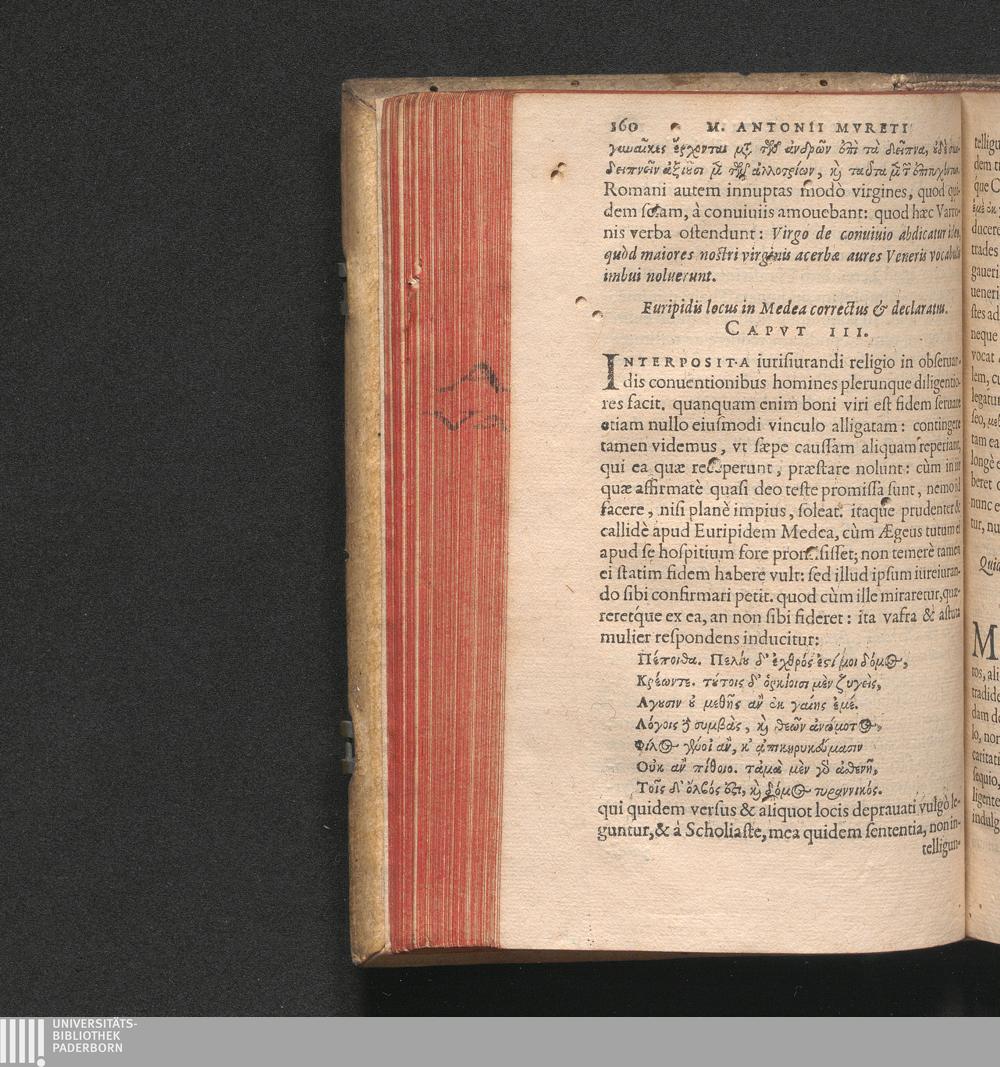 160 M. ANTONII MVRETI
γυναῖκες ἔρχονται μζ τῶν ἀνδρῶν ὅπὶ τὰ δεῖπνα,
δειπνεῖν ἀξιοῦσι μζ τῶν ἀλλοτρίων, κὶ ταῦτα
Romani autem innuptas modò virgines, quod
dem sciam, à conuiuiis amouebant: quod hæc Varro-
nis verba ostendunt: Virgo de conuiuio abdicatur ideo,
quòd maiores nostri virginis acerbæ aures Veneris vocabulis
imbui noluerunt.
Euripidis locus in Medea correctus & declaratus.
CAPVT III.
INTERPOSITA iurisiurandi religio in obseruan-
dis conuentionibus homines plerunque diligentio-
res facit. quanquam enim boni viri est fidem seruare
etiam nullo eiusmodi vinculo alligatam: contingere
tamen videmus, vt sæpe caussam aliquam reperiant,
qui ea quæ receperunt, præstare nolunt: cùm in iis
quæ affirmatè quasi deo teste promissa sunt, nemo id
facere, nisi planè impius, soleat. itaque prudenter &
callidè apud Euripidem Medea, cùm Ægeus tutum ei
apud se hospitium fore promisisset; non temerè tamen
ei statim fidem habere vult: sed illud ipsum iureiuran-
do sibi confirmari petit. quod cùm ille miraretur, quæ-
reretq́ue ex ea, an non sibi fideret: ita vafra & astuta
mulier respondens inducitur:
Πέποιθα. Πελίου δ' ἐχθρός ἐστί μοι δόμος,
Κρέωντε. τούτοις δ' ὁρκίοισι μὲν ζυγεὶς,
Αγουσιν οὐ μεθῇς ἂν ἐκ γαίης ἐμέ.
Λόγοις δὲ συμβὰς, κὶ θεῶν ἀνώμοτος,
Φίλος γένοι' ἂν, κ' ἀπικηρυκεύμασιν
Οὐκ ἂν πίθοιο. τἀμὰ μὲν γὸ ἀσθενῆ,
Τοῖς δ' ὄλβός ὅστι, κὶ δόμος τυραννικός.
qui quidem versus & aliquot locis deprauati vulgò le-
guntur, & à Scholiaste, mea quidem sententia, non in-
telligun-
telligu
dem
que C
ducere
trades
gaueri
ueneri
stes ad
neque
vocat
lem, cu
legatur
tam ea
longè
beret
nunc e
tur, nu
Quid
M
tos, ali
tradide
dam de
lo, non
caritati
sequio,
ligente
indulg
UNIVERSITÄTS-
BIBLIOTHEK
PADERBORN